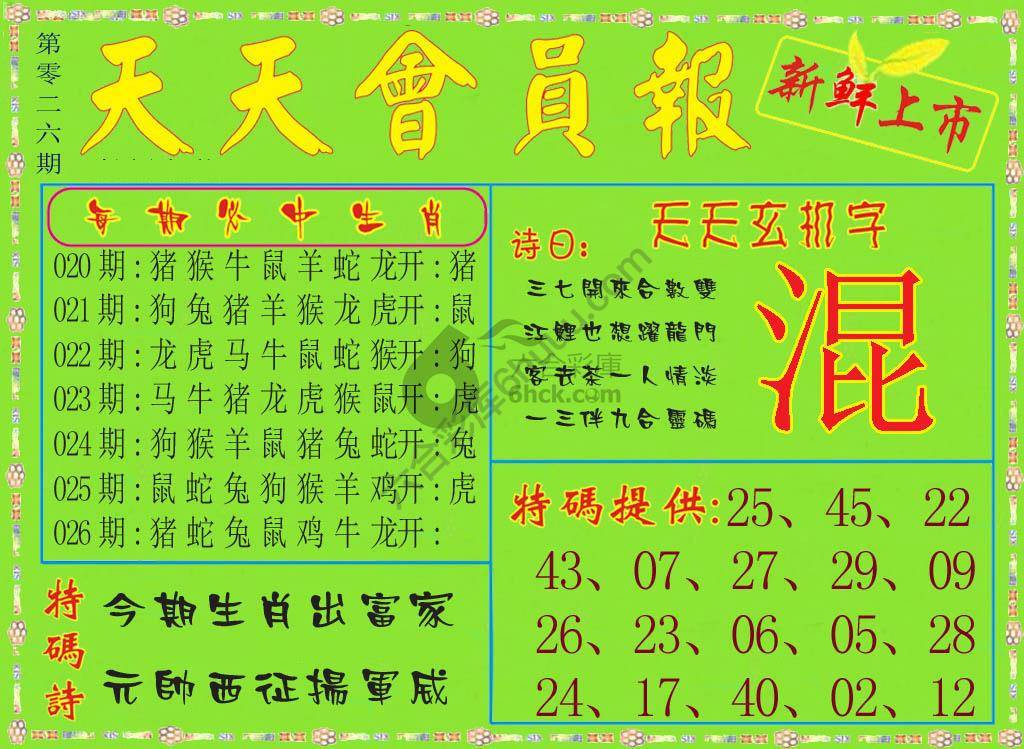 第零二六期
天天會員報
新鮮上市
每期必中生肖
020期:猪猴牛鼠羊蛇龙开:猪
021期:狗兔猪羊猴龙虎开:鼠
022期:龙虎马牛鼠蛇猴开:狗
023期:马牛猪龙虎猴鼠开:虎
024期:狗猴羊鼠猪兔蛇开:兔
025期:鼠蛇兔狗猴羊鸡开:虎
026期:猪蛇兔鼠鸡牛龙开:
特碼詩
今期生肖出富家
元帥西征揚軍威
天天玄机字
诗曰:
三七開來合數雙
江鯉也想躍龍門
客去茶一人情淡
一三伴九合靈碼
混
特碼提供:25、45、22
43、07、27、29、09
26、23、06、05、28
24、17、40、02、12
六合彩庫
6hck.com